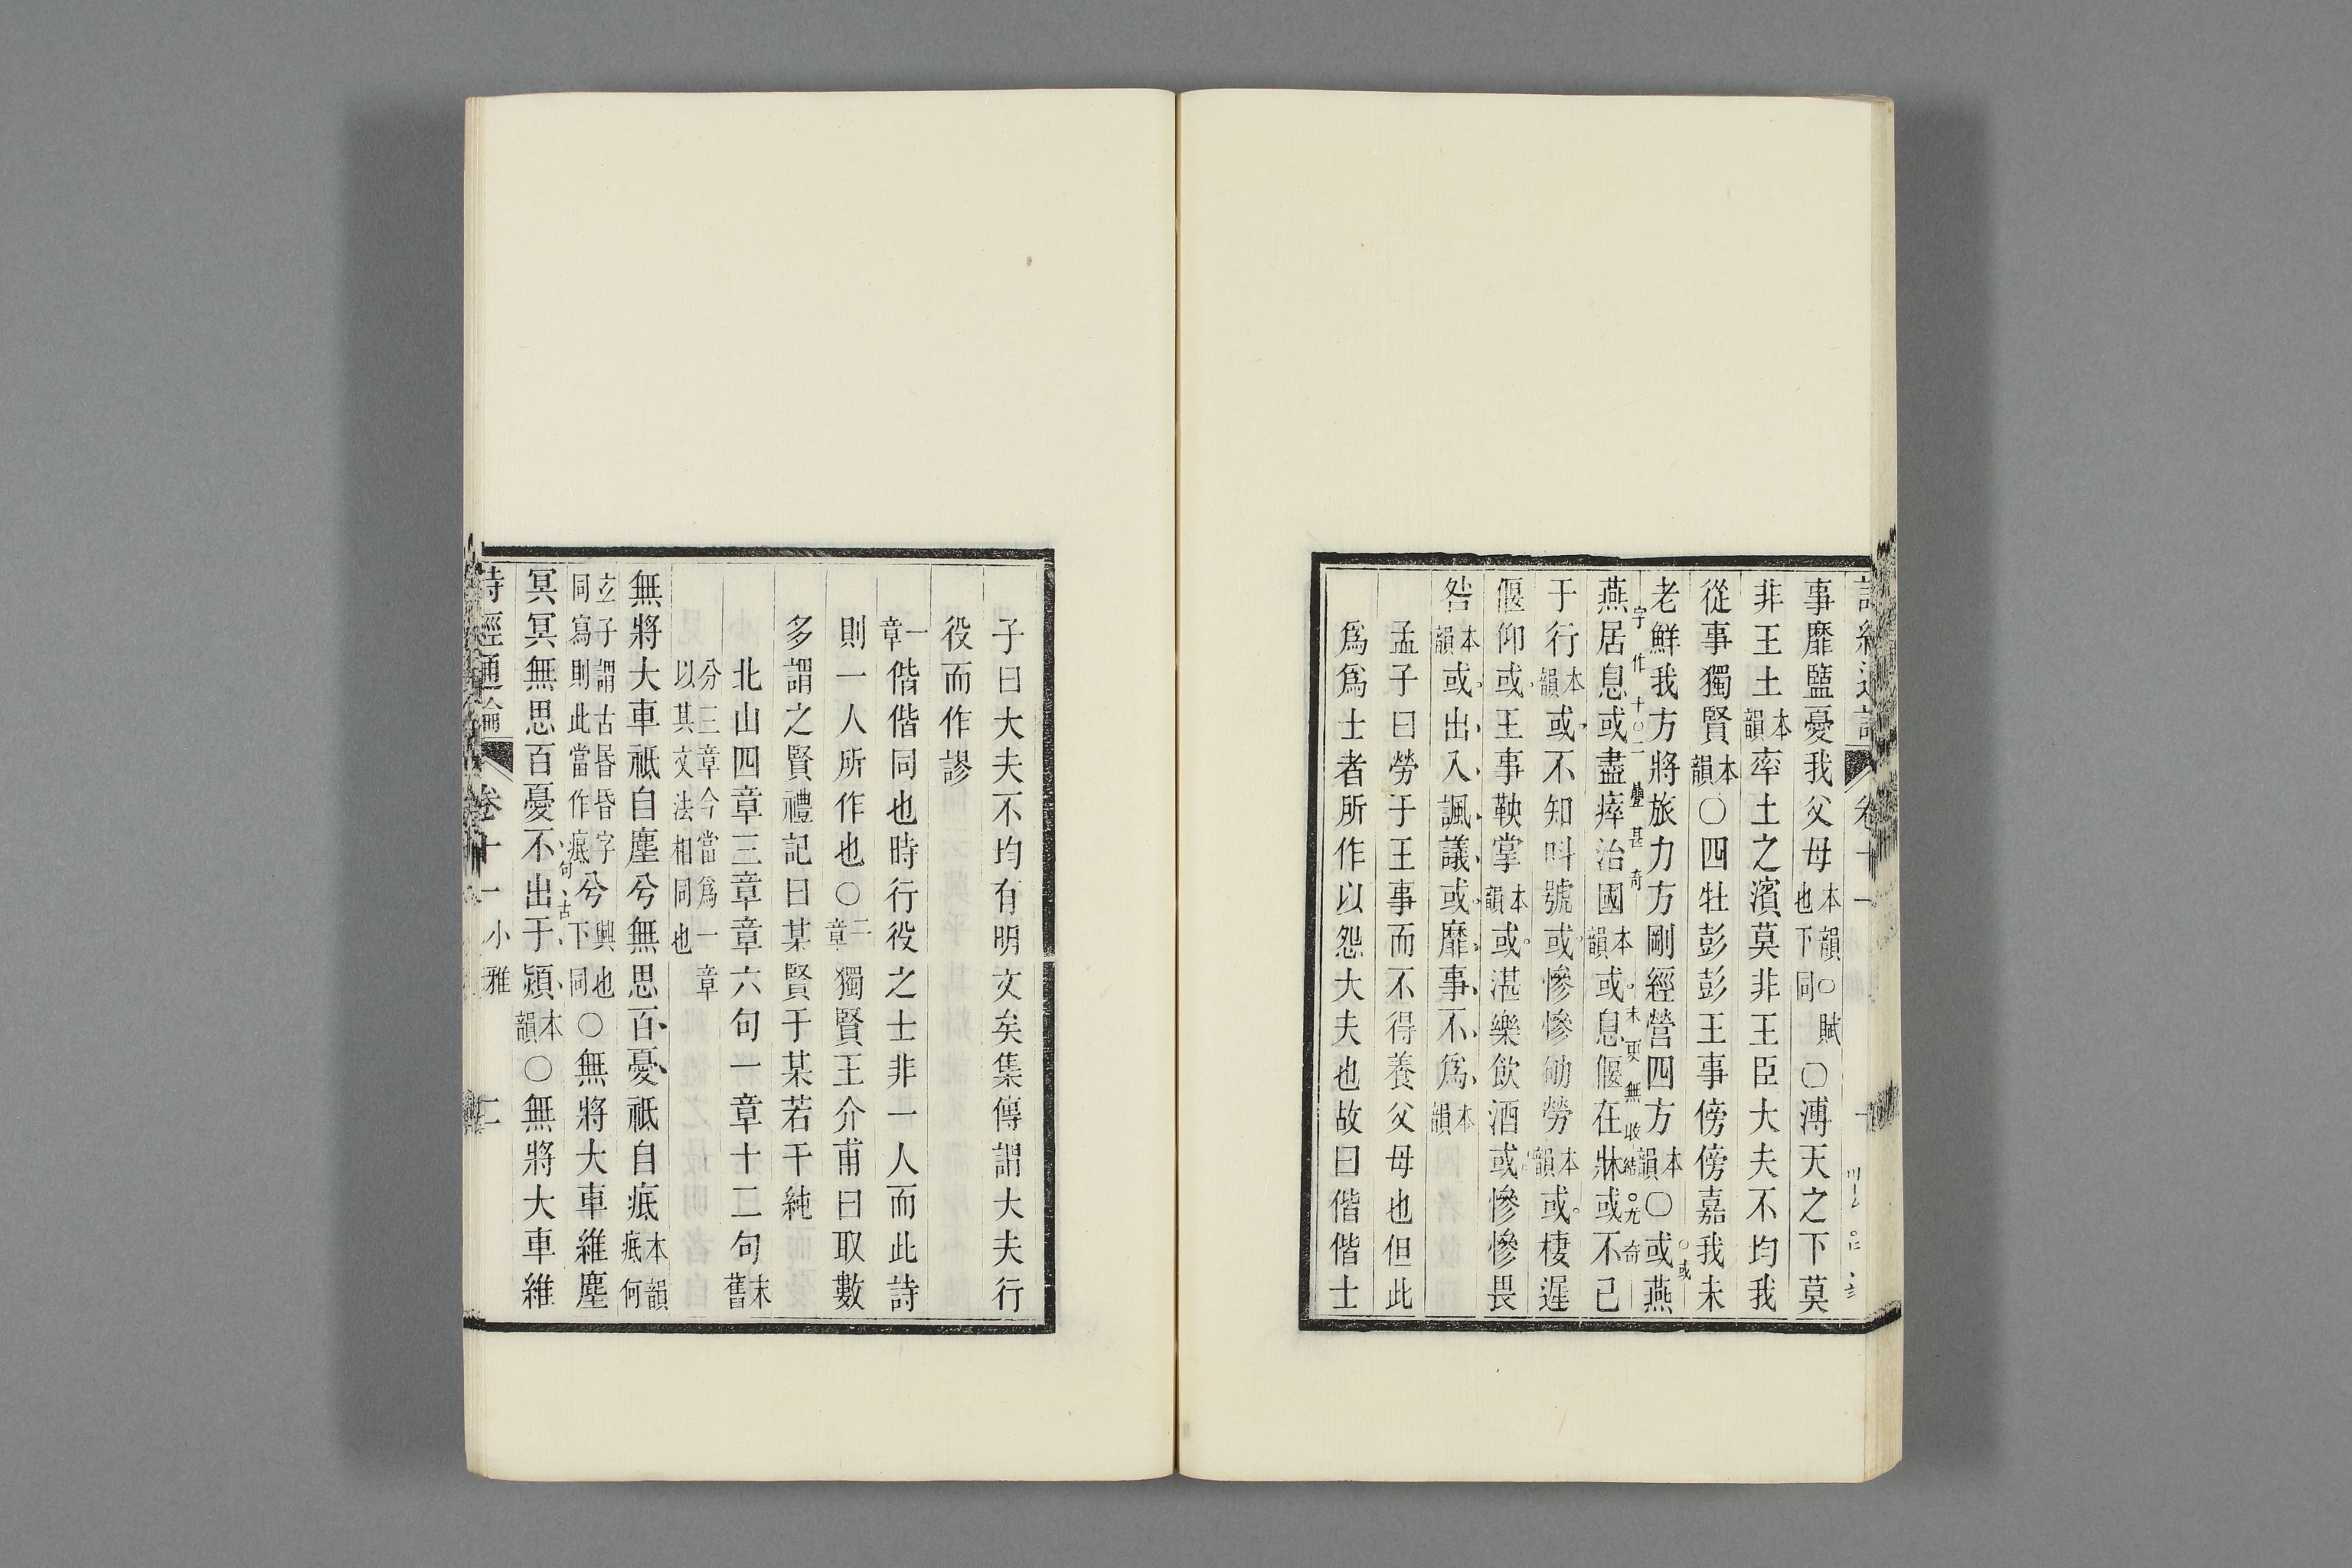 事靡盬憂我父母本韻也下同○賦○溥天之下莫
非王土本韻率土之濱莫非王臣大夫不均我
從事獨賢本韻○四牡彭彭王事傍傍嘉我未
老鮮我方將旅力方剛經營四方本韻○或燕
○或
字作十○二疊甚奇末更無收結○尤奇
燕居息或盡瘁治國本韻或息偃在牀或不已
于行本韻或不知叫號或慘慘劬勞本韻或棲遲
偃仰或王事鞅掌本韻或湛樂飲酒或慘慘畏
咎本韻或出入諷議或靡事不爲本韻
孟子曰勞于王事而不得養父母也但此
爲爲士者所作以怨大夫也故曰偕偕士
子曰大夫不均有明文矣集傳謂大夫行
役而作謬
一章偕偕同也時行役之士非一人而此詩
則一人所作也○二章獨賢王介甫曰取數
多謂之賢禮記曰某賢于某若干純
北山四章三章章六句一章十二句末舊
分三章今當爲一章
以其文法相同也
無將大車祗自塵兮無思百憂祗自疧本韻疧何
玄子謂古昬昏字
同寫則此當作痻
兮興也下同○無將大車維塵
句古
冥冥無思百憂不出于熲本韻○無將大車維
詩經通論 卷十一 小雅 二